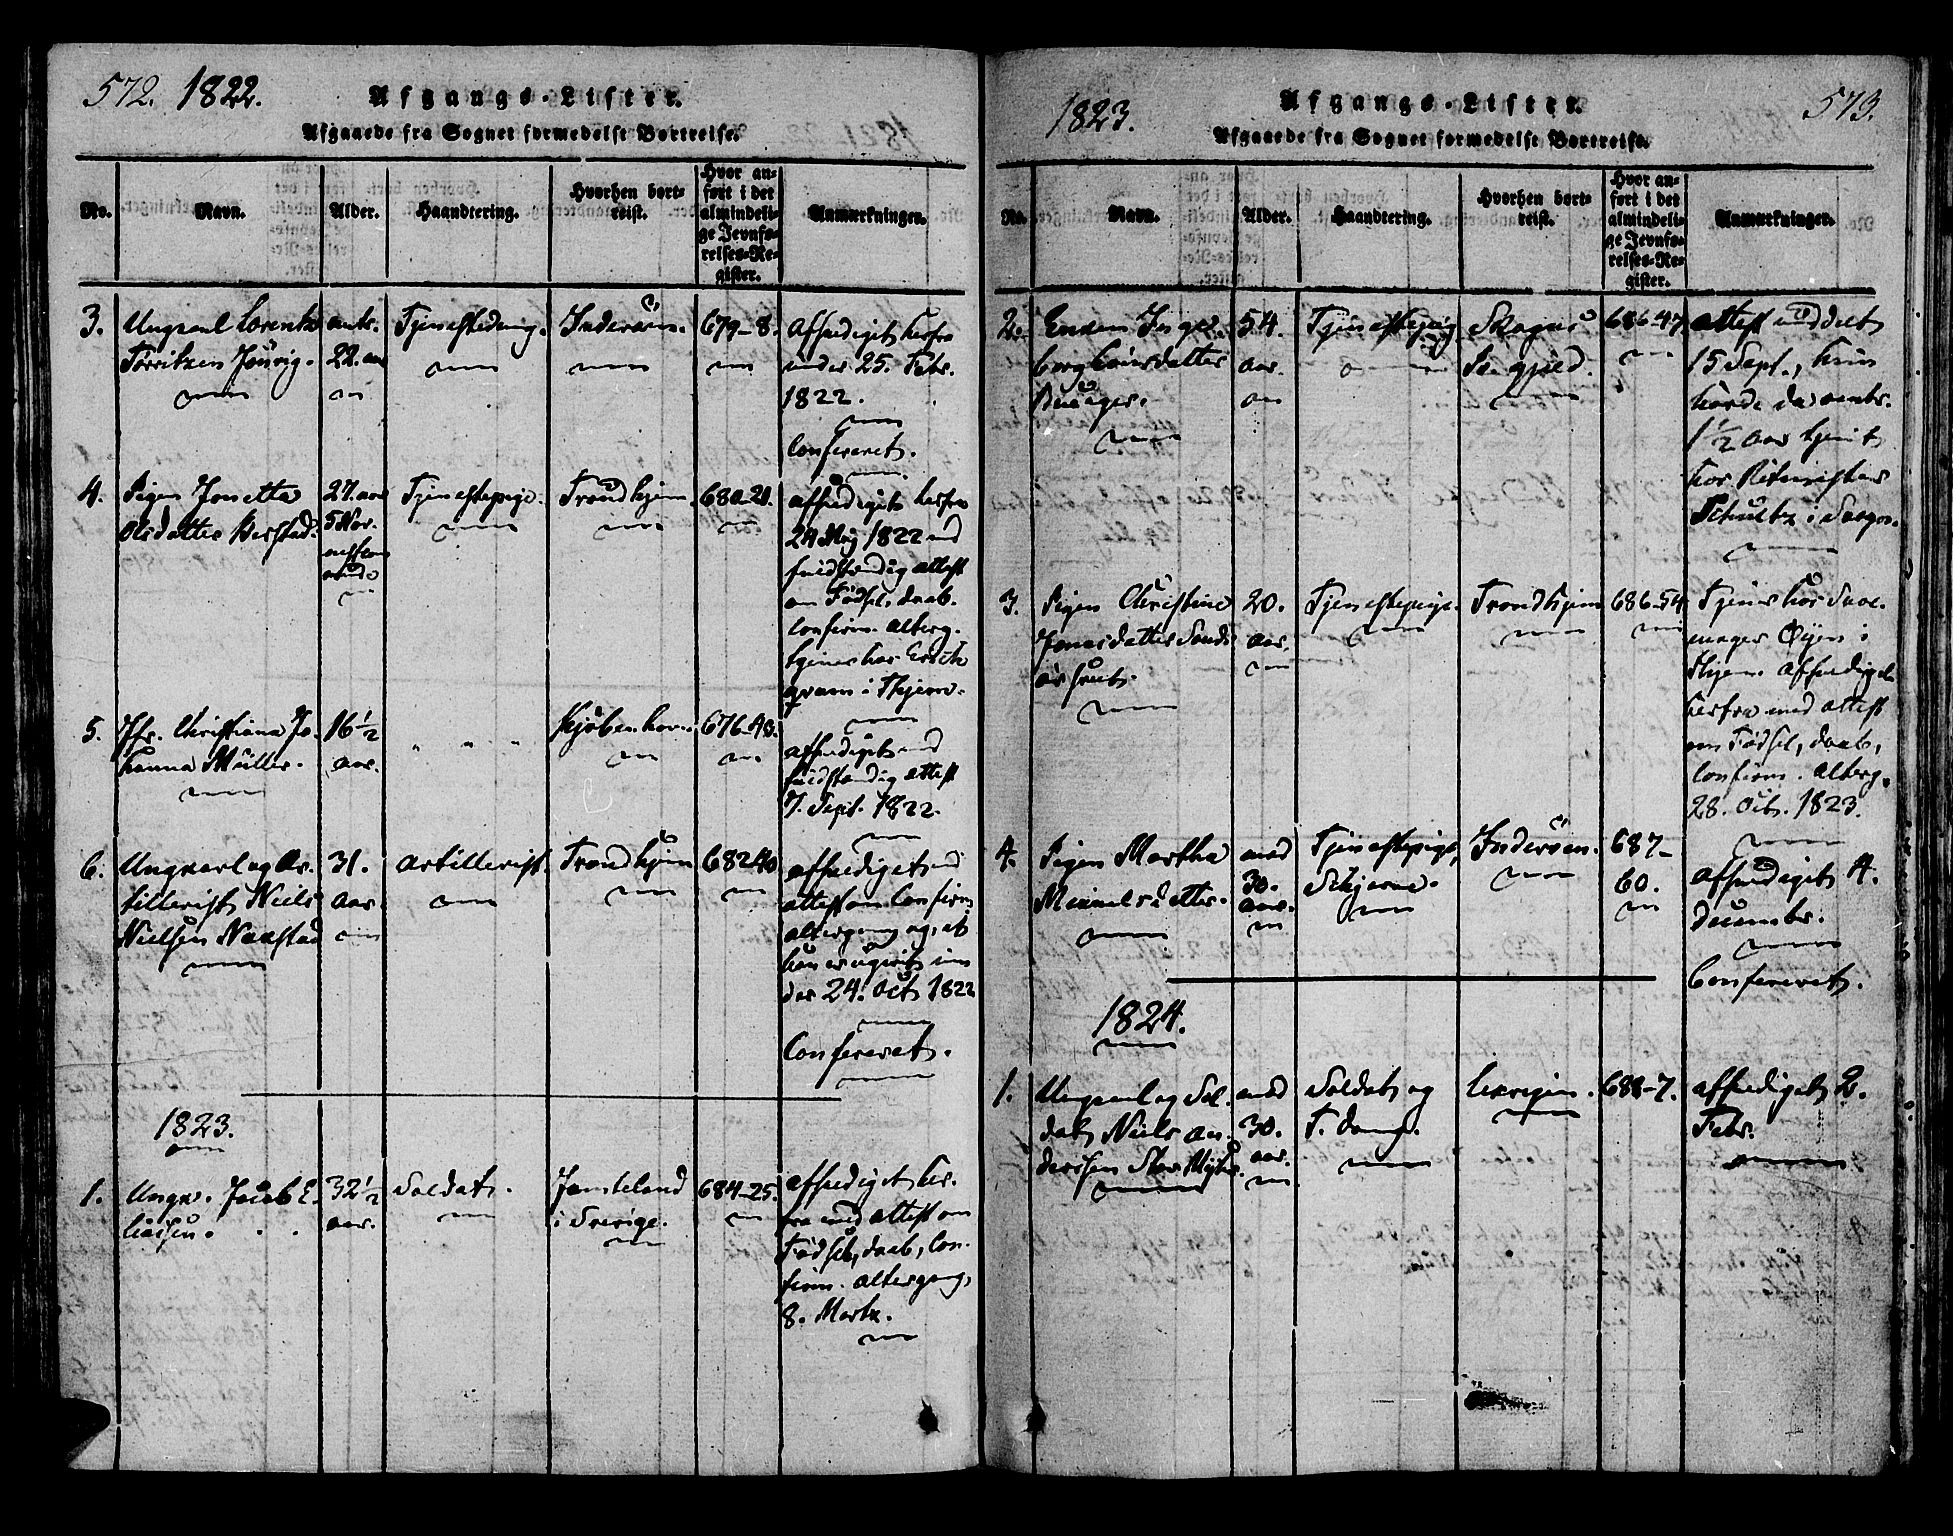 572. 1822.
Afgangs-Lister.
Afgaaede fra Sognet formedelst Bortreise.
No.
Navn.
Alder.
Haandtering.
Hvorhen bort-
reist.
Hvor an-
ført i det
almindeli-
ge Jevnfø-
relses-Re-
gister.
Anmærkninger.
3.
Ungkarl Lorentz
22. aar
Tjenestedreng.
Inderøen.
679-8.
afskediget herfra
under 25. Febr.
1822.
Confereret.
4.
Pigen Jonetta
Olsdatter
27. aar
Tjenestepige.
Trondhjem.
680-21.
afskediget herfra
24 Maj 1822 med
fuldstændig attest
om Fødsel, daab.
Confirm. Alterg.
tjener hos
i Thjem.
5.
Jfr. Christiana Jo-
hanna Müller.
16 1/2
aar.
" " "
Kjøbenhavn.
676-48.
afskediget med
fuldstændig attest
7. Sept. 1822.
6.
Ungkarl og Ar-
tillerist Niels
Nielsen Naustad
31.
aar.
Artillerist.
Trondhjem
682-40
afskediget med
attest om Confirm.
altergang og, at
han er ugivt un-
der 24. Oct 1822
Confereret.
1823.
1.
Ungk. Jacob E-
liasen.
32 1/2
aar.
Soldat.
Jemteland
i Sverige.
684-25.
afskediget her-
fra med attest om
Fødsel, daab, Con-
firm. altergang,
8. Martz.
1823.
573.
Afgangs-Lister.
Afgaaede fra Sognet formedelst Bortreise.
No.
Navn.
Alder.
Haandtering.
Hvorhen bort-
reist.
Hvor an-
ført i det
almindeli-
ge Jevnfø-
relses-Re-
gister.
Anmærkninger.
2.
Enken Inge-
borg Larsdatter
54.
aar.
Tjenestepig
Skogns
Pr.gjeld.
686-47
attest meddelt
15 Sept., hun
havde da omtr.
1 1/2 aar tjent
hos Ritmester
Schultz i Skogn.
3.
Pigen Christine
Jonasdatter
20.
aar.
Tjenestepige.
Trondhjem
686-54
Tjener hos
Øyen i
Thjem. Afskediget
herfra med attest
om Fødsel, daab,
Confirm. Alterg.
28. Oct. 1823.
4.
Pigen Martha
Mikkelsdatter.
med
30.
aar.
Tjenestepige,
Inderøen.
687-
60.
afskediget 4.
Decembr.
Confereret.
1824.
1.
Ungkarl og Sol-
dat Niels An-
dersen
med
30.
aar.
Soldat og
T. dreng.
Lexvigen.
688-7.
afskediget 2.
Febr.